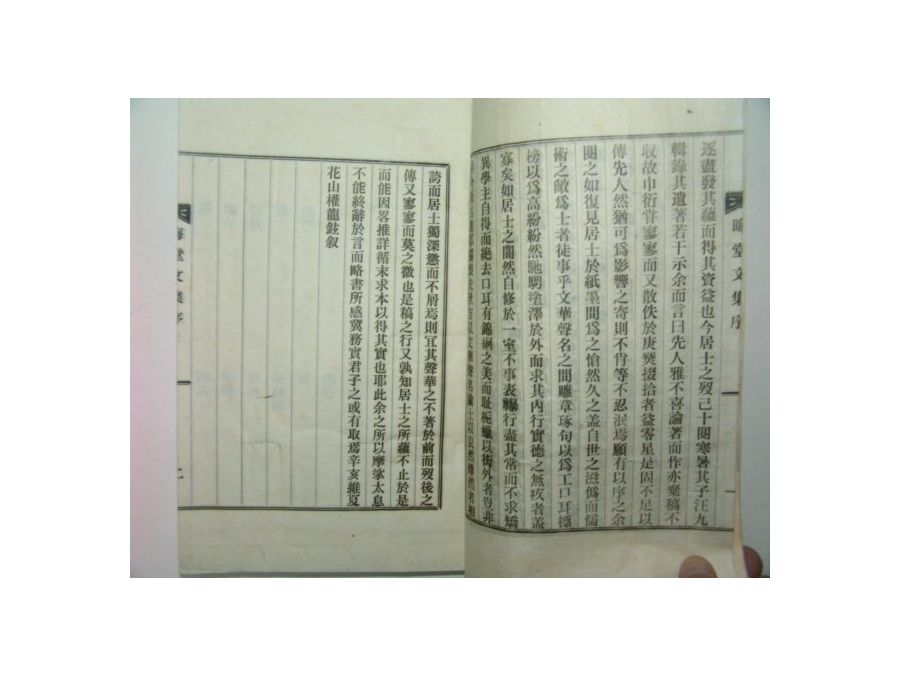 堂文集序
逐盡發其蘊而得其資益也今居士之歿已十閱寒暑其子汪九
輯錄其遺著若干示余而言曰先人雅不喜論著而作亦棄稿不
收故巾衍嘗寥寥而又散佚於庚燹掇拾者益零星是固不足以
傳先人然猶可爲影響之寄則不肖等不忍泯焉願有以序之余
閱之如復見居士於紙墨間爲之愴然久之盖自世之滋僞而儒
術之敝爲士者徒事乎文華聲名之間雕章琢句以爲工口耳標
榜以爲高紛紛然馳騁塗澤於外而求其內行實德之無疚者盖
寡矣如居士之闇然自修於一室不事表襮行盡其常而不求矯
異學主自得而絶去口耳有錦絅之美而耻梔蠟以衒外者豈非
世方以文華聲名論士以
誇而居士獨深懲而不屑焉則宜其聲華之不著於前而歿後之
傳又寥寥而莫之徵也是稿之行又孰知居士之所蘊不止於是
而能因畧推詳循末求本以得其實也耶此余之所以摩挲太息
不能終辭於言而略書所感冀務實君子之或有取焉辛亥維夏
花山權龍鉉叙
堂文集序
二